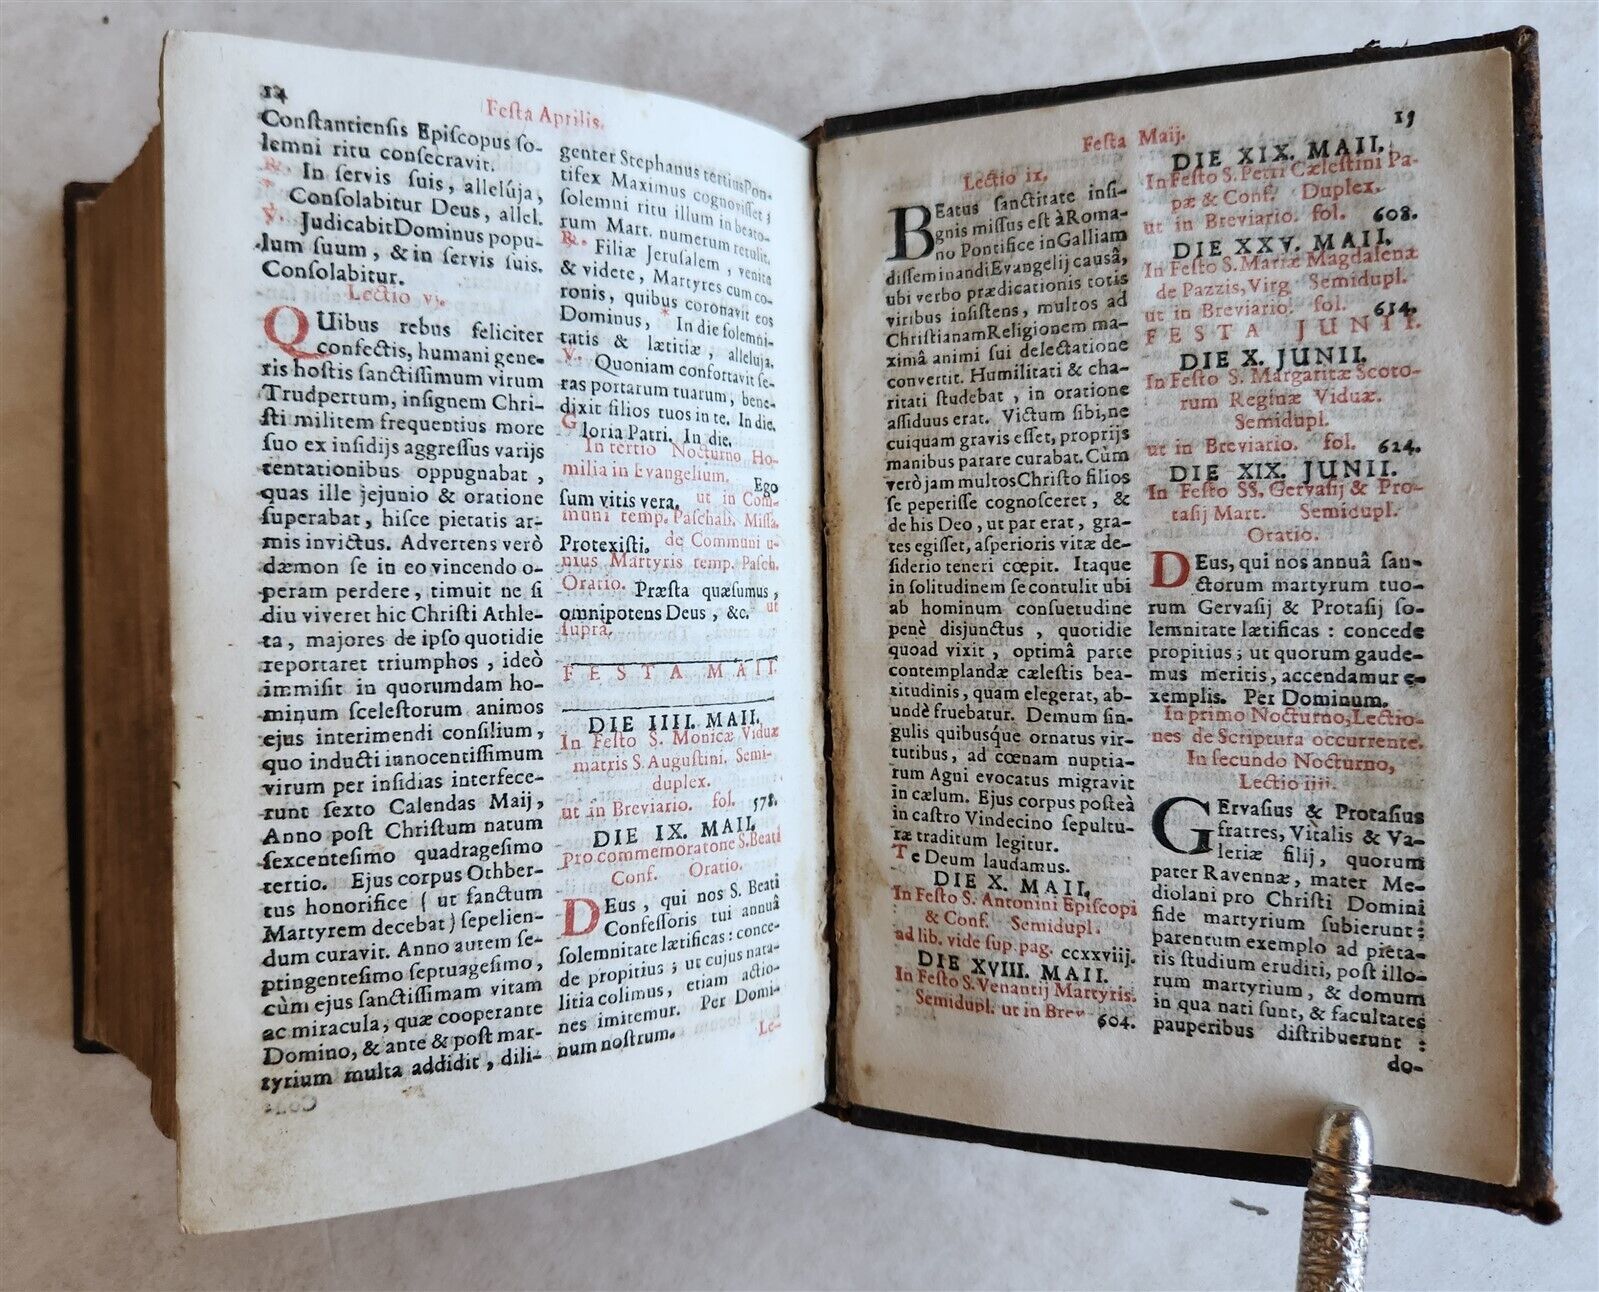 14
Festa Aprilis.
Conſtantienſis Epiſcopus ſo-
lemni ritu conſecravit.
℟. In ſervis ſuis, allelúja,
* Conſolabitur Deus, allel.
℣. Judicabit Dominus popu-
lum ſuum, & in ſervis ſuis.
Conſolabitur.
Lectio vj.
QUibus rebus feliciter
confectis, humani gene-
ris hoſtis ſanctiſſimum virum
Trudpertum, inſignem Chri-
ſti militem frequentius more
ſuo ex inſidijs aggreſſus varijs
tentationibus oppugnabat,
quas ille jejunio & oratione
ſuperabat, hiſce pietatis ar-
mis invictus. Advertens verò
dæmon ſe in eo vincendo o-
peram perdere, timuit ne ſi
diu viveret hic Chriſti Athle-
ta, majores de ipſo quotidie
reportaret triumphos, ideò
immiſit in quorumdam ho-
minum ſceleſtorum animos
ejus interimendi conſilium,
quo inducti innocentiſſimum
virum per inſidias interfece-
runt ſexto Calendas Maij,
Anno poſt Chriſtum natum
ſexcenteſimo quadrageſimo
tertio. Ejus corpus Othber-
tus honorifice ( ut ſanctum
Martyrem decebat) ſepelien-
dum curavit. Anno autem ſe-
ptingenteſimo ſeptuageſimo,
cùm ejus ſanctiſſimam vitam
ac miracula, quæ cooperante
Domino, & ante & poſt mar-
tyrium multa addidit, dili-
genter Stephanus tertius Pon-
tifex Maximus cognoviſſet;
ſolemni ritu illum in beato-
rum Mart. numerum retulit.
℟. Filiæ Jeruſalem, venite
& videte, Martyres cum co-
ronis, quibus coronavit eos
Dominus, * In die ſolemni-
tatis & lætitiæ, alleluja.
℣. Quoniam confortavit ſe-
ras portarum tuarum, bene-
dixit filios tuos in te. In die.
Gloria Patri. In die.
In tertio Nocturno Ho-
milia in Evangelium. Ego
ſum vitis vera. ut in Com-
muni temp. Paſchali. Miſſa.
Protexiſti. de Communi u-
nius Martyris temp. Paſch.
Oratio. Præſta quæſumus,
omnipotens Deus, &c. ut
ſupra.
FESTA MAII.
DIE IIII. MAII.
In Feſto S. Monicæ Viduæ
matris S. Auguſtini. Semi-
duplex.
ut in Breviario. fol. 578.
DIE IX. MAII.
Pro commemoratone S. Beati
Conf. Oratio.
DEus, qui nos S. Beati
Confeſſoris tui annuâ
ſolemnitate lætificas: conce-
de propitius; ut cujus nata-
litia colimus, etiam actio-
nes imitemur. Per Domi-
num noſtrum.
Le-
15
Feſta Maij.
Lectio ix.
BEatus ſanctitate inſi-
gnis miſſus eſt à Roma-
no Pontifice in Galliam
diſſeminandi Evangelij causâ,
ubi verbo prædicationis totis
viribus inſiſtens, multos ad
Chriſtianam Religionem ma-
ximâ animi ſui delectatione
convertit. Humilitati & cha-
ritati ſtudebat, in oratione
aſſiduus erat. Victum ſibi, ne
cuiquam gravis eſſet, proprijs
manibus parare curabat. Cùm
verò jam multos Chriſto filios
ſe peperiſſe cognoſceret, &
de his Deo, ut par erat, gra-
tes egiſſet, aſperioris vitæ de-
ſiderio teneri cœpit. Itaque
in ſolitudinem ſe contulit ubi
ab hominum conſuetudine
penè disjunctus, quotidie
quoad vixit, optimâ parte
contemplandæ cæleſtis bea-
titudinis, quam elegerat, ab-
undè fruebatur. Demum ſin-
gulis quibuſque ornatus vir-
tutibus, ad cœnam nuptia-
rum Agni evocatus migravit
in cælum. Ejus corpus poſteà
in caſtro Vindecino ſepultu-
ræ traditum legitur.
Te Deum laudamus.
DIE X. MAII.
In Feſto S. Antonini Epiſcopi
& Conf. Semidupl.
ad lib. vide ſup. pag. ccxxviij.
DIE XVIII. MAII.
In Feſto S. Venantij Martyris.
Semidupl. ut in Brev
604.
DIE XIX. MAII.
In Feſto S. Petri Cæleſtini Pa-
pæ & Conf. Duplex.
ut in Breviario. fol. 608.
DIE XXV. MAII.
In Feſto S. Mariæ Magdalenæ
de Pazzis, Virg Semidupl.
ut in Breviario. fol. 614.
FESTA JUNII.
DIE X. JUNII.
In Feſto S. Margaritæ Scoto-
rum Reginæ Viduæ.
Semidupl.
ut in Breviario. fol. 624.
DIE XIX. JUNII.
In Feſto SS. Gervaſij & Pro-
taſij Mart. Semidupl.
Oratio.
DEus, qui nos annuâ ſan-
ctorum martyrum tuo-
rum Gervaſij & Protaſij ſo-
lemnitate lætificas: concede
propitius; ut quorum gaude-
mus meritis, accendamur e-
xemplis. Per Dominum.
In primo Nocturno, Lectio-
nes de Scriptura occurrente.
In ſecundo Nocturno,
Lectio iiij.
GErvaſius & Protaſius
fratres, Vitalis & Va-
leriæ filij, quorum
pater Ravennæ, mater Me-
diolani pro Chriſti Domini
fide martyrium ſubierunt:
parentum exemplo ad pieta-
tis ſtudium eruditi, poſt illo-
rum martyrium, & domum
in qua nati ſunt, & facultates
pauperibus diſtribuerunt:
do-